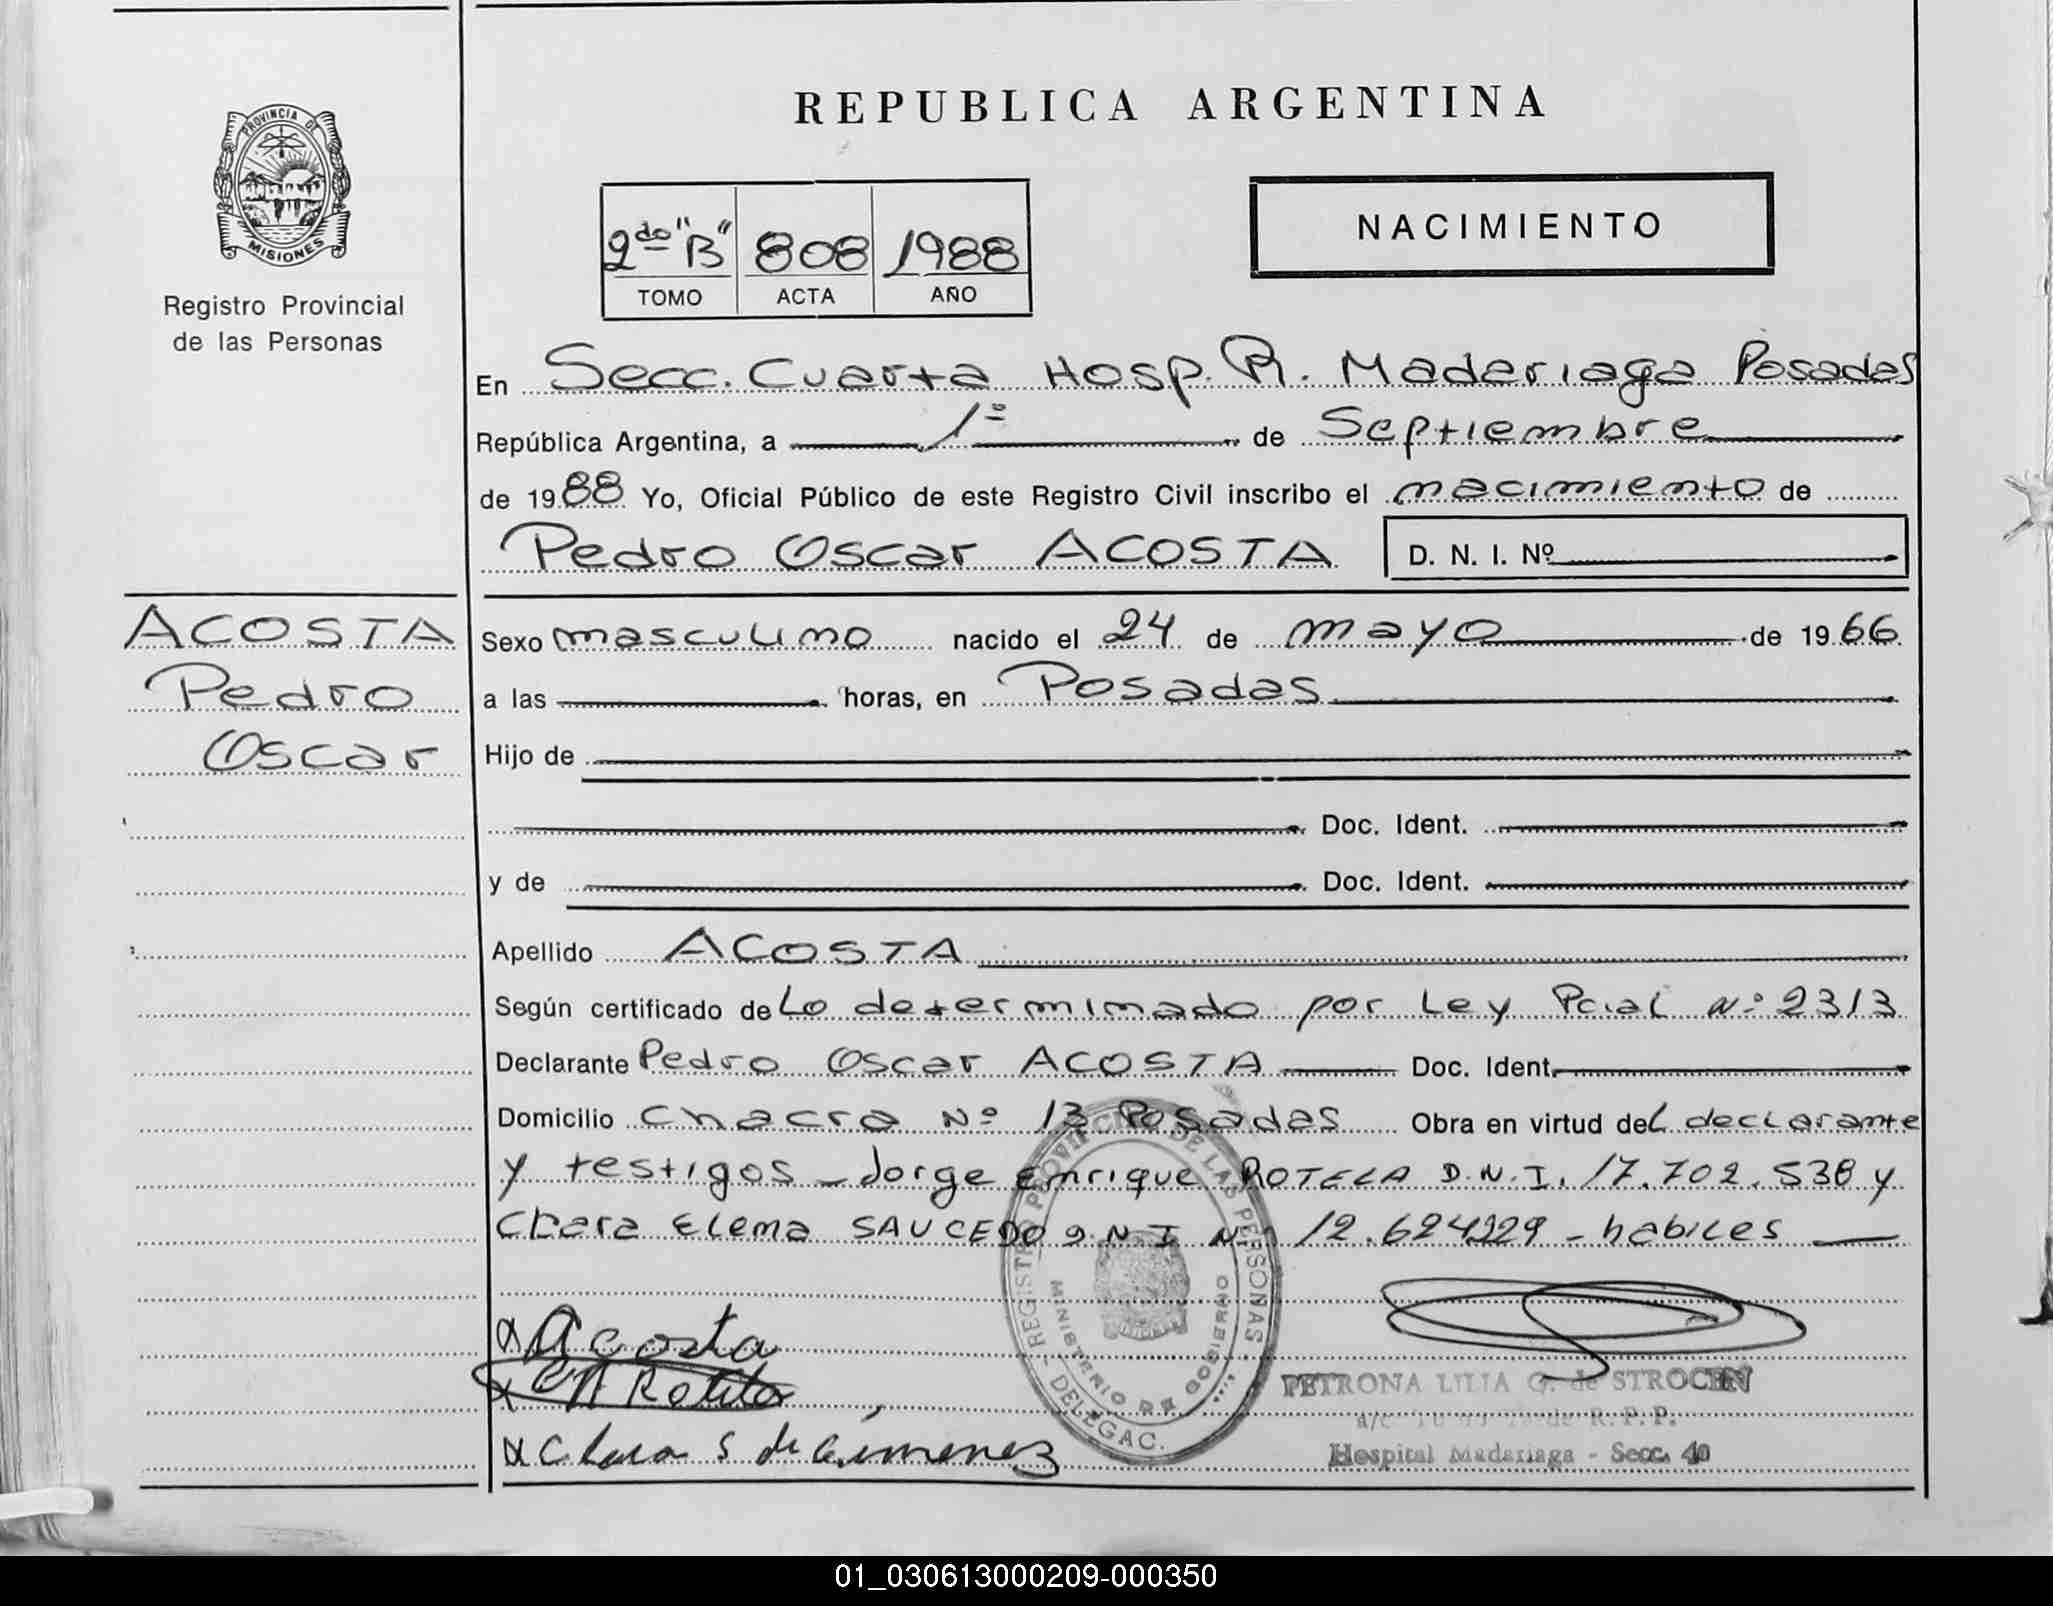 PROVINCIA DE
MISIONES
Registro Provincial
de las Personas
REPUBLICA ARGENTINA
2do "B" 808 1988
TOMO ACTA AÑO
NACIMIENTO
En Secc. Cuarta Hosp. R. Madariaga Posadas
República Argentina, a 1º de Septiembre
de 1988 Yo, Oficial Público de este Registro Civil inscribo el nacimiento de
Pedro Oscar ACOSTA D. N. I. Nº
ACOSTA
Pedro
Oscar
Sexo masculino nacido el 24 de mayo de 1966
a las horas, en Posadas
Hijo de
Doc. Ident.
y de Doc. Ident.
Apellido ACOSTA
Según certificado de Lo determinado por Ley Pcial Nº 2313
Declarante Pedro Oscar ACOSTA Doc. Ident.
Domicilio Chacra Nº 13 Posadas Obra en virtud del declarante
y testigos - Jorge Enrique ROTELA D.N.I. 17.702.538 y
Clara Elena SAUCEDO D.N.I Nº 12.624229 - habiles
x Acosta
x Clara S de Gimenez
REGISTRO PROVINCIAL DE LAS PERSONAS
MINISTERIO DE GOBIERNO
DELEGAC.
PETRONA LILIA G. de STROCEN
R. P. P.
Hospital Madariaga - Secc. 4a
01_030613000209-000350